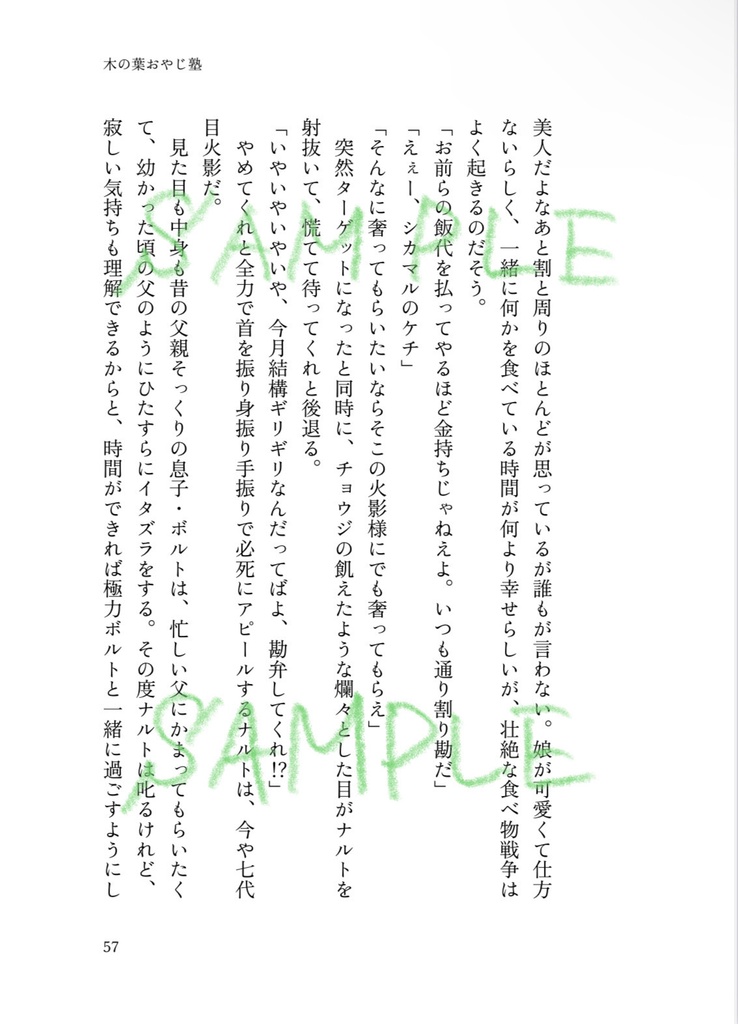 木の葉おやじ塾
美人だよなあと割と周りのほとんどが思っているが誰もが言わない。娘が可愛くて仕方
ないらしく、一緒に何かを食べている時間が何より幸せらしいが、壮絶な食べ物戦争は
よく起きるのだそう。
「お前らの飯代を払ってやるほど金持ちじゃねえよ。いつも通り割り勘だ」
「えぇー、シカマルのケチ」
「そんなに奢ってもらいたいならそこの火影様にでも奢ってもらえ」
突然ターゲットになったと同時に、チョウジの飢えたような爛々とした目がナルトを
射抜いて、慌てて待ってくれと後退る。
「いやいやいやいや、今月結構ギリギリなんだってばよ、勘弁してくれ!?」
やめてくれと全力で首を振り身振り手振りで必死にアピールするナルトは、今や七代
目火影だ。
見た目も中身も昔の父親そっくりの息子・ボルトは、忙しい父にかまってもらいたく
て、幼かった頃の父のようにひたすらにイタズラをする。その度ナルトは叱るけれど、
寂しい気持ちも理解できるからと、時間ができれば極力ボルトと一緒に過ごすようにし
57
SAMPLE
SAMPLE